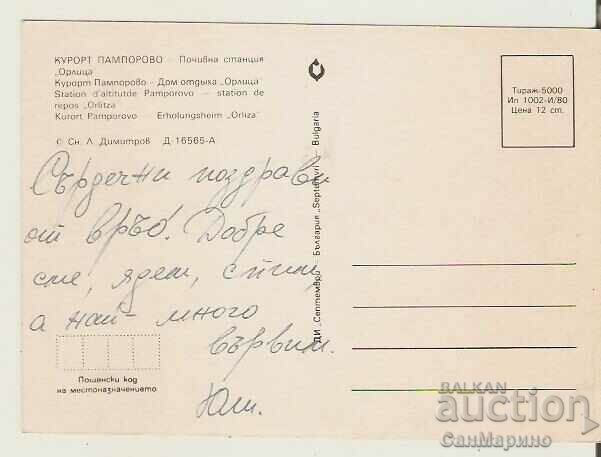 КУРОРТ ПАМПОРОВО – Почивна станция
„Орлица
Курорт Пампорово – Дом отдыха „Орлица"
Station d'altitutde Pamporovo – station de
repos „Orlitza
Kurort Pamporovo – Erholungsheim „Orliza"
© Сн. Л. Димитров Д-16565-А
Сърдечни поздрави
от връо! Добре
сме, ядем, спим,
а най-много
вървим.
Юли.
Пощенски код
на местоназначението
ДИ „Септември – България „Septemvri – Bulgaria
Тираж-5000
Ип 1002-И/80
Цена 12 ст.
BALKAN
auction
СанМарино